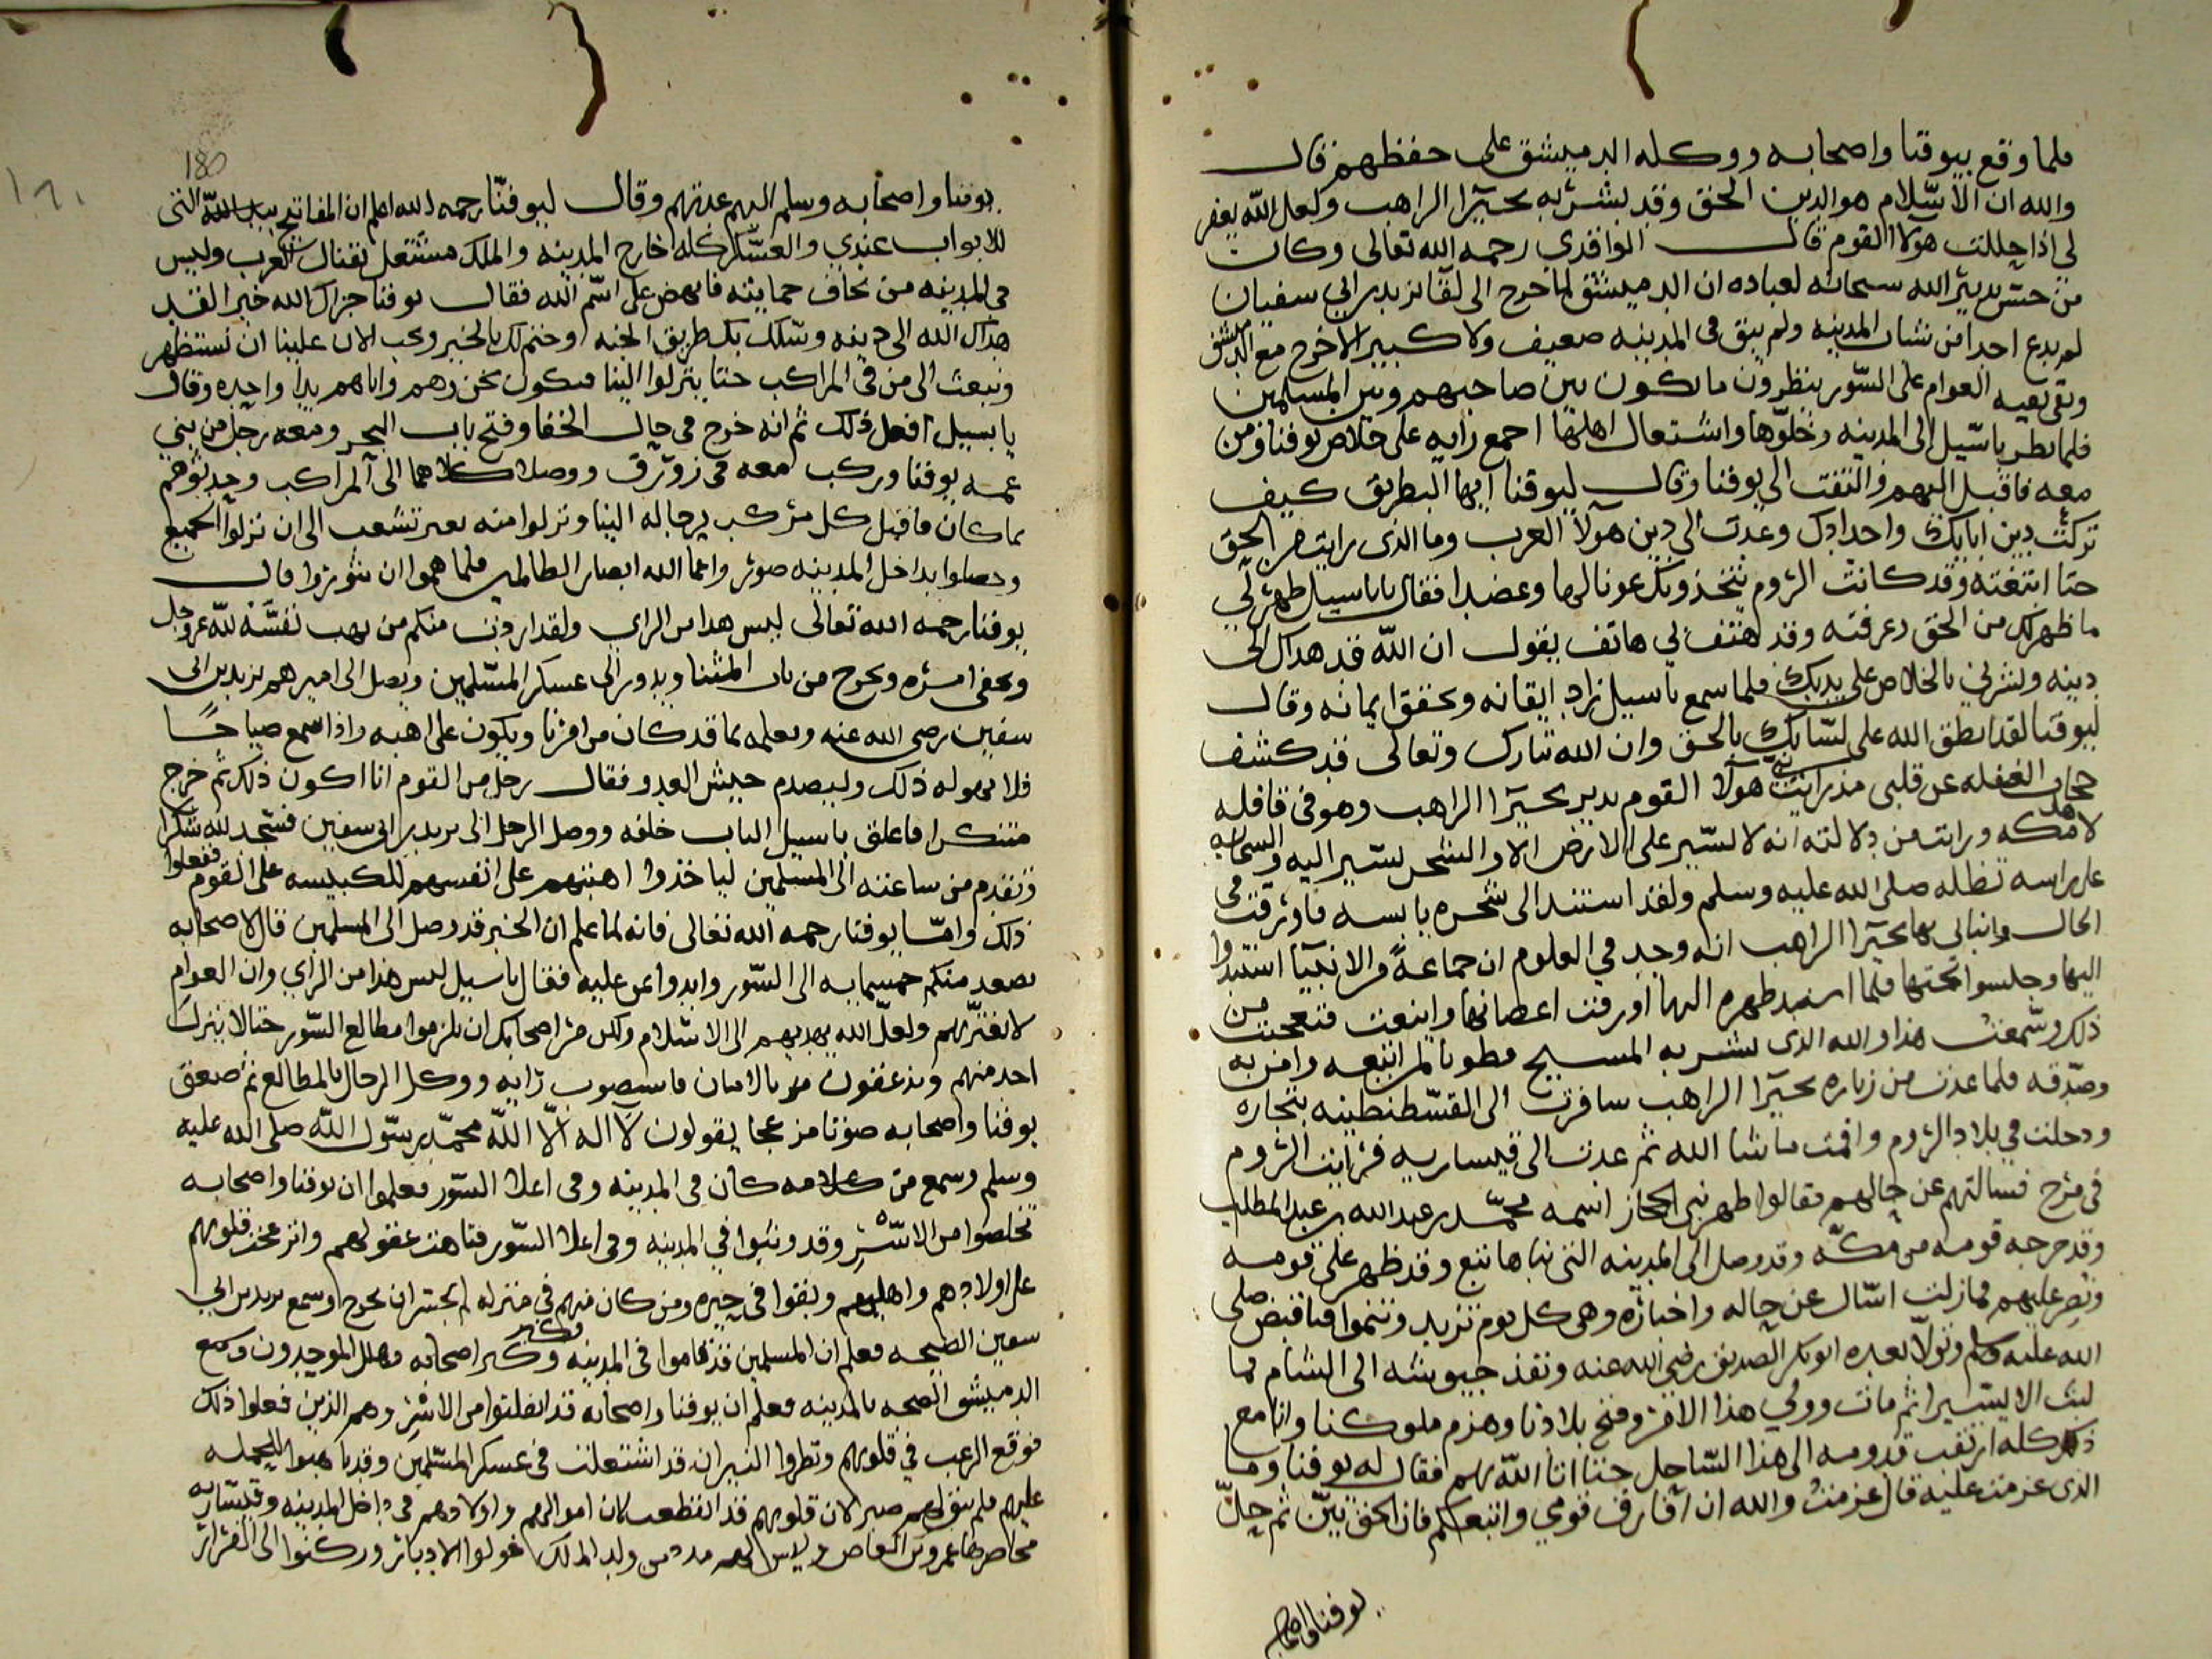 فلما وقع بيوقنا واصحابه ووكله الدميشق على حفظهم قال
والله ان الاسلام هو الدين الحق وقد بشر به بحيرا الراهب ولعل الله يغفر
لي اذا حللت هولا القوم قال الواقدي رحمه الله تعالى وكان
من حسن تدبير الله سبحانه لعباده ان الدميشق لما خرج الى لقا يزيد بن ابي سفيان
لم يدع احدا من شبان المدينه ولم يبق في المدينه ضعيف ولا كبير الا خرج مع الدميشق
وبقي بقيه العوام على السور ينظرون ما يكون بين صاحبهم وبين المسلمين
فلما نظر باسيل الى المدينه وخلوها واشتعال اهلها اجمع رايه على خلاص يوقنا ومن
معه فاقبل اليهم والتفت الى يوقنا وقال ليوقنا ايها البطريق كيف
تركت دين ابايك واجدادك وعدت الى دين هولا العرب وما الذي رايت من الحق
حتا اتبعته وقد كانت الروم تتخذونك عونا لها وعضدا فقال يا باسيل ظهر لي
ما ظهر لك من الحق وعرفته وقد هتف بي هاتف يقول ان الله قد هداك الى
دينه وبشرني بالخلاص على يديك فلما سمع باسيل زاد ايقانه وتحقق ايمانه وقال
ليوقنا لقد انطق الله على لسانك بالحق وان الله تبارك وتعالى قد كشف
حجاب الغفله عن قلبي منذ رايت نبي هولا القوم بدير بحيرا الراهب وهو في قافله
لاهل مكه ورايت من دلالته انه لا يسير على الارض الا والشجر يسير اليه والسحابه
على راسه تظله صلى الله عليه وسلم ولقد استند الى شجره يابسه فاورقت في
الحال وانبالي بها بحيرا الراهب انه وجد في العلوم ان جماعة من الانبيا استندوا
اليها وجلسوا تحتها فلما اسند ظهره اليها اورقت اغصانها واينعت فتعجبت من
ذلك وسمعت هذا والله الذي بشر به المسيح فطوبا لمن اتبعه وامن به
وصدقه فلما عدت من زياره بحيرا الراهب سافرت الى القسطنطينه بتجاره
ودخلت في بلاد الروم واقمت ما شا الله ثم عدت الى قيساريه فرايت الروم
في مرج فسالتهم عن حالهم فقالوا ظهر نبي الحجاز اسمه محمد بن عبد الله بن عبد المطلب
وقد خرجه قومه من مكه وقد وصل الى المدينه التي بناها تبع وقد ظهر على قومه
ونصر عليهم فما زلت اسال عن حاله واخباره وهي كل يوم تزيد وتنموا فنا قبض صلى
الله عليه وسلم وتولا بعده ابو بكر الصديق رضي الله عنه ونفذ جيوشه الى الشام فما
لبث الا يسيرا ثم مات وولي هذا الامر وفتح بلادنا وهزم ملوكنا وانا مع
ذلك كله ارتقب قدومه الى هذا الساحل حتا اتا الله بهم فقال له يوقنا وما
الذي عزمت عليه قال عزمت والله ان افارق قومي واتبعكم فان الحق بين ثم حل
يوقنا واصحابه
180
يوقنا واصحابه وسلم اليهم عدتهم وقال ليوقنا رحمه الله اعلم ان المفاتيح التي
للابواب عندي والعسكر كله خارج المدينه والملك مشتغل بقتال العرب وليس
في المدينه من نخاف حمايته فانهض على اسم الله فقال يوقنا جزاك الله خيرا لقد
هداك الله الى دينه وسلك بك طريق الجنه وختم لك بالخير ويجب الان علينا ان نستظهر
ونبعث الى من في المراكب حتا ينزلوا الينا فنكون نحن وهم واياهم يدا واحده وقال
يا بسيل افعل ذلك ثم انه خرج في حال الخفا وفتح باب البحر ومعه رجل من بني
عمه يوقنا وركب معه في زورق ووصلا كلاهما الى المراكب وحدثوهم
بما كان فاقبل كل مركب برجاله الينا ونزلوا منه بغير تشعب الى ان نزلوا الجميع
وحصلوا بداخل المدينه صور واعما الله ابصار الظالمين فلما هموا ان يثوروا قال
يوقنا رحمه الله تعالى ليس هذا من الراي ولقد اردت منكم من يهب نفسه لله عز وجل
ويخفي امره ويخرج من باب المشنا ويدور الى عسكر المسلمين ويصل الى اميرهم يزيد بن ابي
سفين رضي الله عنه ويعلمه بما قد كان من امرنا ويكون على اهبه واذا سمع صياحا
فلا يهوله ذلك وليصدم جيش العدو فقال رجل من القوم انا اكون ذلك ثم خرج
متنكرا فاغلق باسيل الباب خلفه ووصل الرجل الى يزيد بن ابي سفين فسجد لله شكرا
وتقدم من ساعته الى المسلمين لياخذوا اهبتهم على انفسهم للكبيسه على القوم ففعلوا
ذلك واما يوقنا رحمه الله تعالى فانه لما علم ان الخبر قد وصل الى المسلمين قال لاصحابه
يصعد منكم خمسمايه الى السور وابدوا عن عليه فقال باسيل ليس هذا من الراي وان العوام
لا تغتر بهم ولعل الله يهديهم الى الاسلام ولكن مر اصحابك ان يلزموا مطالع السور حتا لا ينزل
احد منهم ويذعنون بالامان فاستصوب رايه ووكل الرجال بالمطالع ثم صعق
يوقنا واصحابه صوتا مزعجا يقولون لا اله الا الله محمد رسول الله صلى الله عليه
وسلم وسمع من كلامه كان في المدينه وفي اعلا السور فعلموا ان يوقنا واصحابه
تخلصوا من الاسر وقد وثبوا في المدينه وفي اعلا السور فتاهت عقولهم وانزعجت قلوبهم
على اولادهم واهليهم وبقوا في حيره ومن كان منهم في منزله لم يجسر ان يخرج وسمع يزيد بن ابي
سفين الصيحه فعلم ان المسلمين قد قاموا في المدينه فكبر وكبر اصحابه وهلل الموحدون وسمع
الدميشق الصيحه بالمدينه فعلم ان يوقنا واصحابه قد انفلتوا من الاسر وهم الذين فعلوا ذلك
فوقع الرعب في قلوبهم ونظروا النيران قد اشتعلت في عسكر المسلمين وقد تاهبوا للحمله
عليهم فلم يبق لهم صبر لان قلوبهم قد انقطعت لان اموالهم واولادهم في داخل المدينه وقيساريه
محاصرها عمرو بن العاص وليس لهم مدد من ولد الملك فولوا الادبار وركنوا الى الفرار